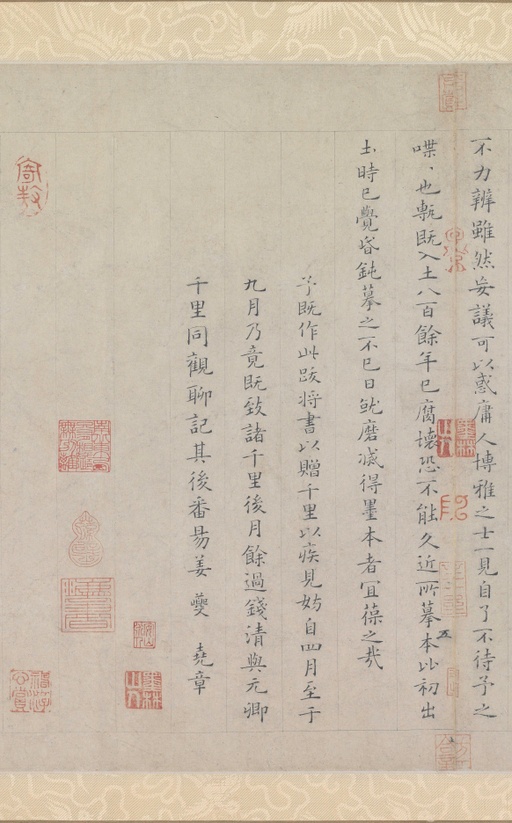 不力辨雖然妄議可以惑庸人博雅之士一見自了不待予之
喋、也甎既入土八百餘年已腐壞恐不能久近所摹本比初出
土時已覺昏鈍摹之不已日就磨滅得墨本者宜葆之哉
予既作此跋將書以贈千里以疾見妨自四月至于
九月乃竟既致諸千里後月餘過錢清與元卿
千里同觀聊記其後番昜姜夔 堯章